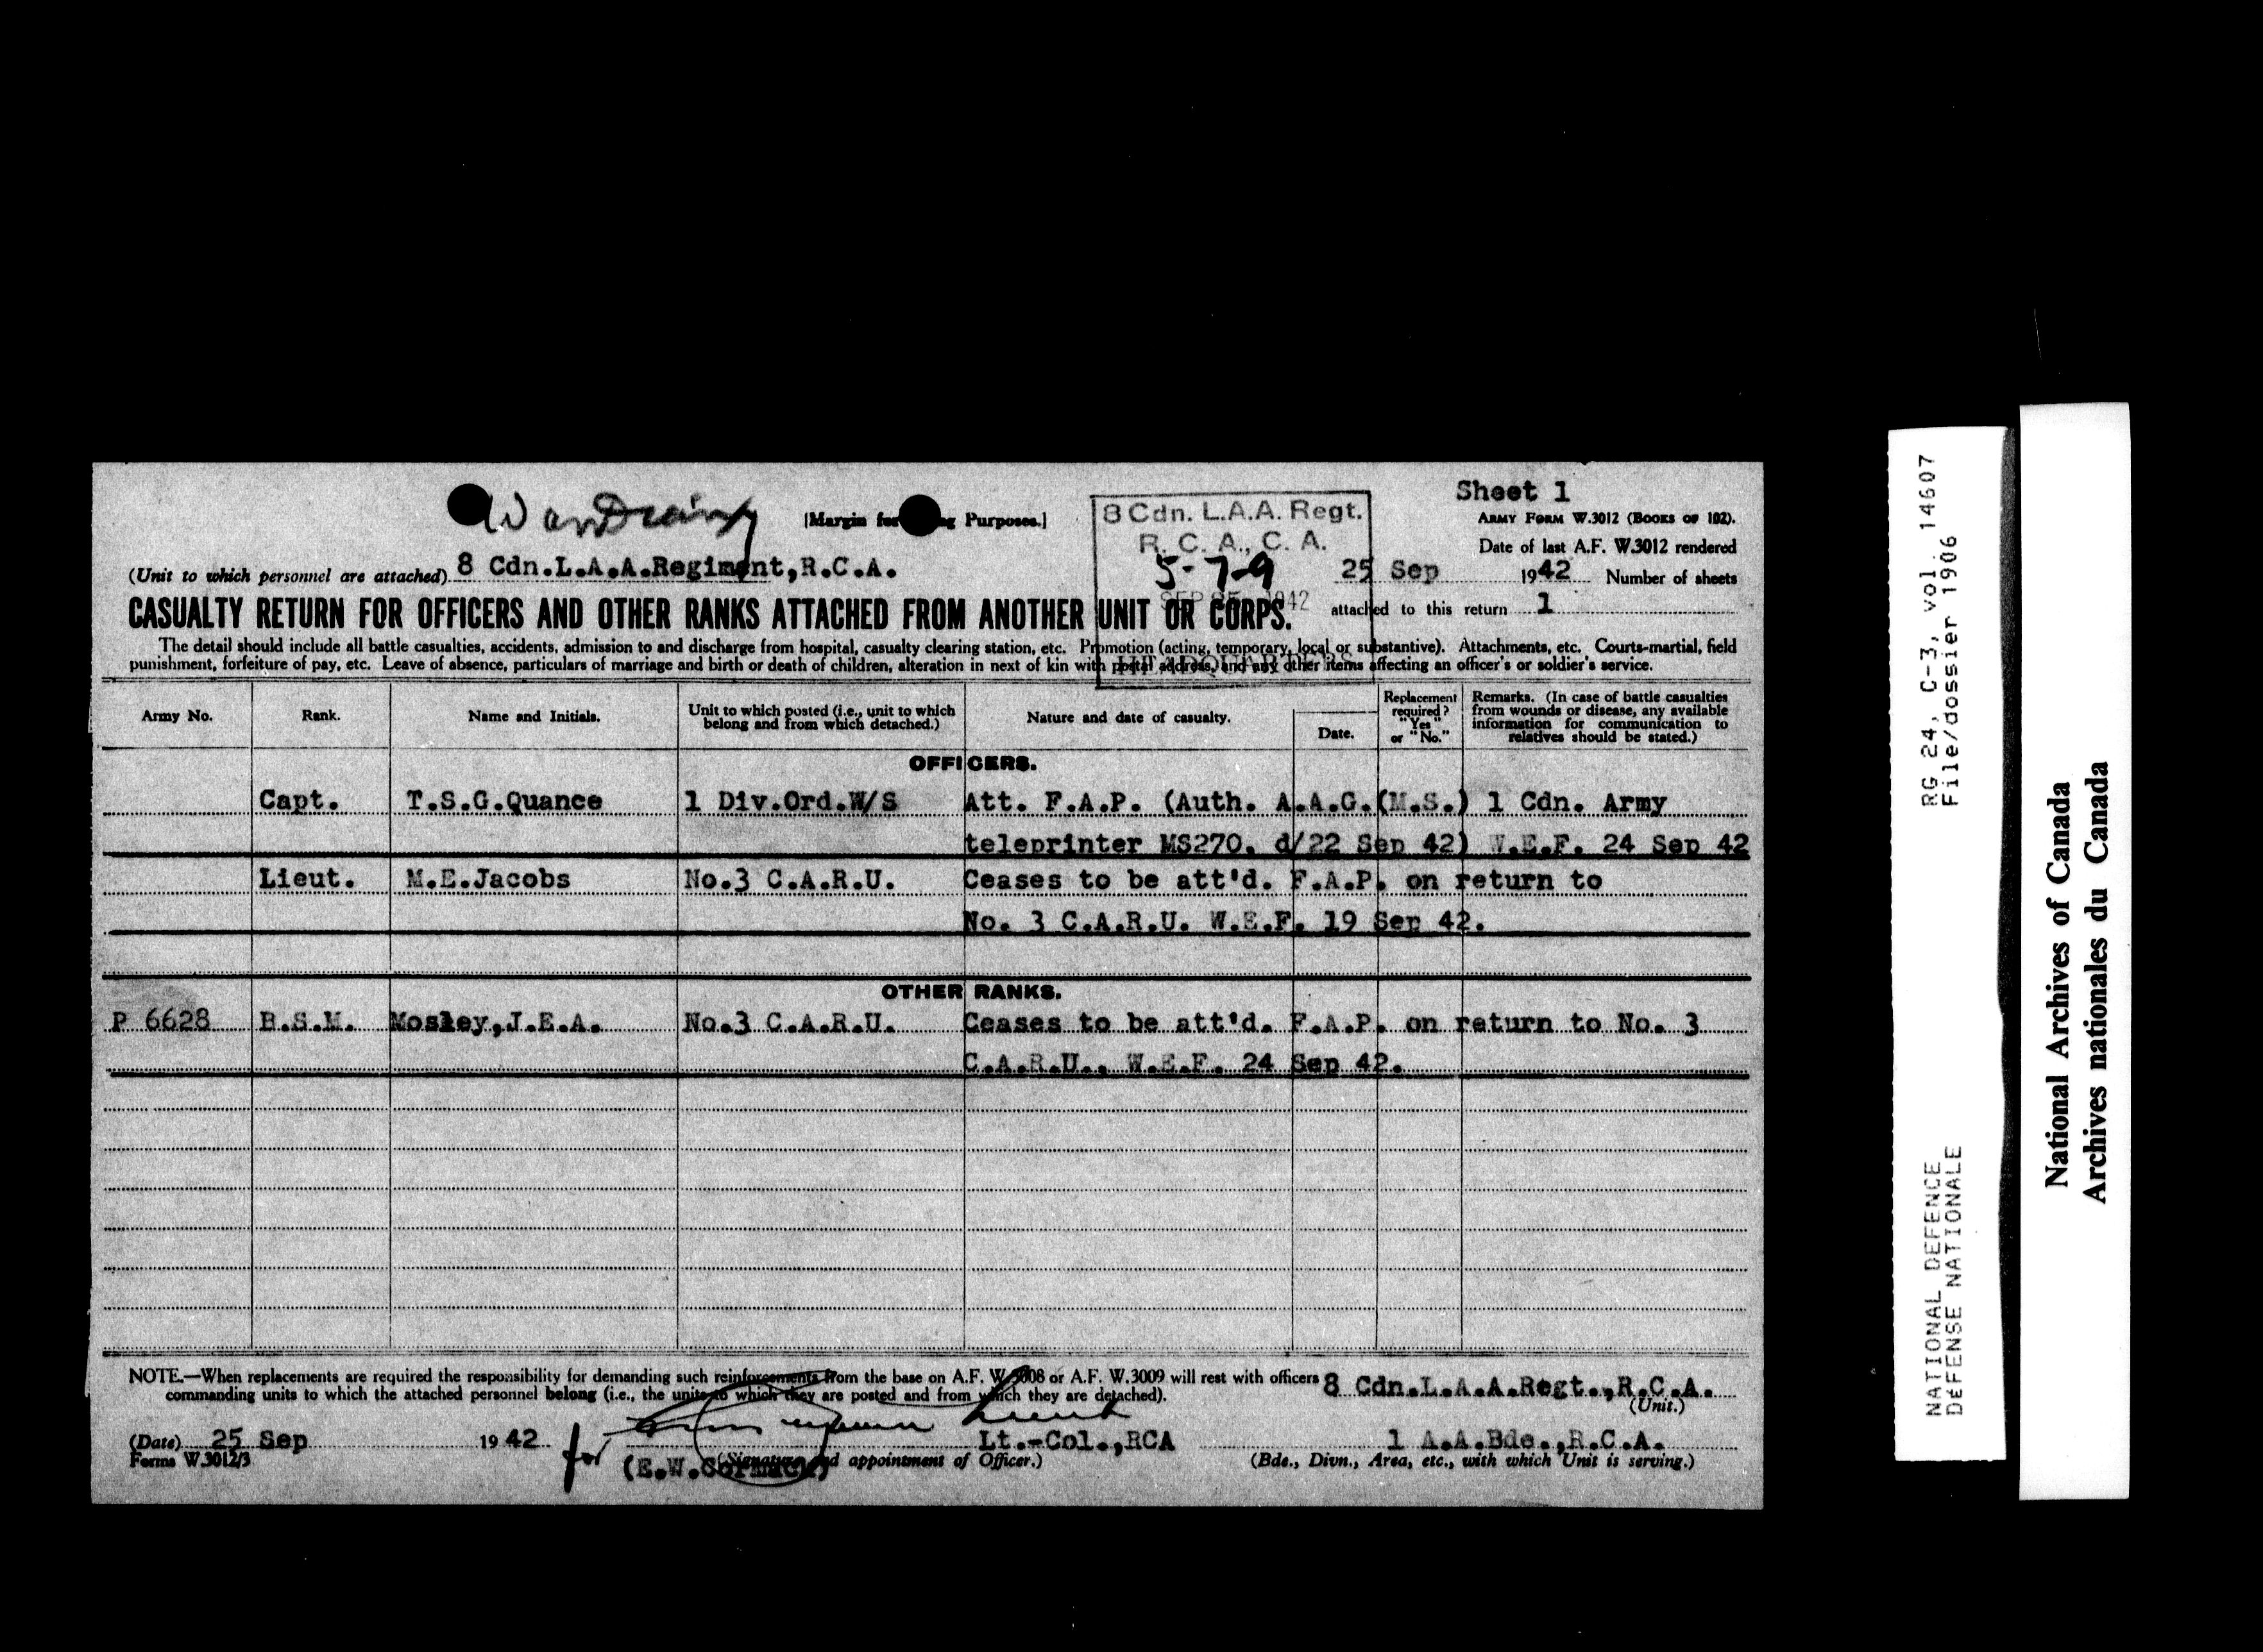 Sheet 1
War Diary
[Margin for Purposes.]
8 Cdn. L.A.A. Regt.
R. C. A., C. A.
5-7-9
SEP 25 1942
HEADQUARTERS
ARMY FORM W.3012 (BOOKS OF 102).
Date of last A.F. W.3012 rendered
25 Sep 1942 Number of sheets
attached to this return 1
(Unit to which personnel are attached) 8 Cdn.L.A.A.Regiment,R.C.A.
CASUALTY RETURN FOR OFFICERS AND OTHER RANKS ATTACHED FROM ANOTHER UNIT OR CORPS.
The detail should include all battle casualties, accidents, admission to and discharge from hospital, casualty clearing station, etc. Promotion (acting, temporary, local or substantive). Attachments, etc. Courts-martial, field
punishment, forfeiture of pay, etc. Leave of absence, particulars of marriage and birth or death of children, alteration in next of kin with postal address, and any other items affecting an officer's or soldier's service.
Army No.
Rank.
Name and Initials.
Unit to which posted (i.e., unit to which
belong and from which detached.)
Nature and date of casualty.
Date.
Replacement
required?
"Yes"
or "No."
Remarks. (In case of battle casualties
from wounds or disease, any available
information for communication to
relatives should be stated.)
OFFICERS.
Capt. T.S.G.Quance 1 Div.Ord.W/S Att. F.A.P. (Auth. A.A.G.(M.S.) 1 Cdn. Army
teleprinter MS270, d/22 Sep 42) W.E.F. 24 Sep 42
Lieut. M.E.Jacobs No.3 C.A.R.U. Ceases to be att'd. F.A.P. on return to
No. 3 C.A.R.U. W.E.F. 19 Sep 42.
OTHER RANKS.
P 6628 B.S.M. Mosley,J.E.A. No.3 C.A.R.U. Ceases to be att'd. F.A.P. on return to No. 3
C.A.R.U., W.E.F. 24 Sep 42.
NOTE.—When replacements are required the responsibility for demanding such reinforcements from the base on A.F. W.3008 or A.F. W.3009 will rest with officers
commanding units to which the attached personnel belong (i.e., the units to which they are posted and from which they are detached).
8 Cdn.L.A.A.Regt.,R.C.A.
(Unit.)
(Date) 25 Sep 1942
for
Lt.-Col.,RCA
1 A.A.Bde.,R.C.A.
Forms W.3012/3
(E.W.Cormack)
(Signature and appointment of Officer.)
(Bde., Divn., Area, etc., with which Unit is serving.)
RG 24, C-3, vol. 14607
File/dossier 1906
NATIONAL DEFENCE
DÉFENSE NATIONALE
National Archives of Canada
Archives nationales du Canada